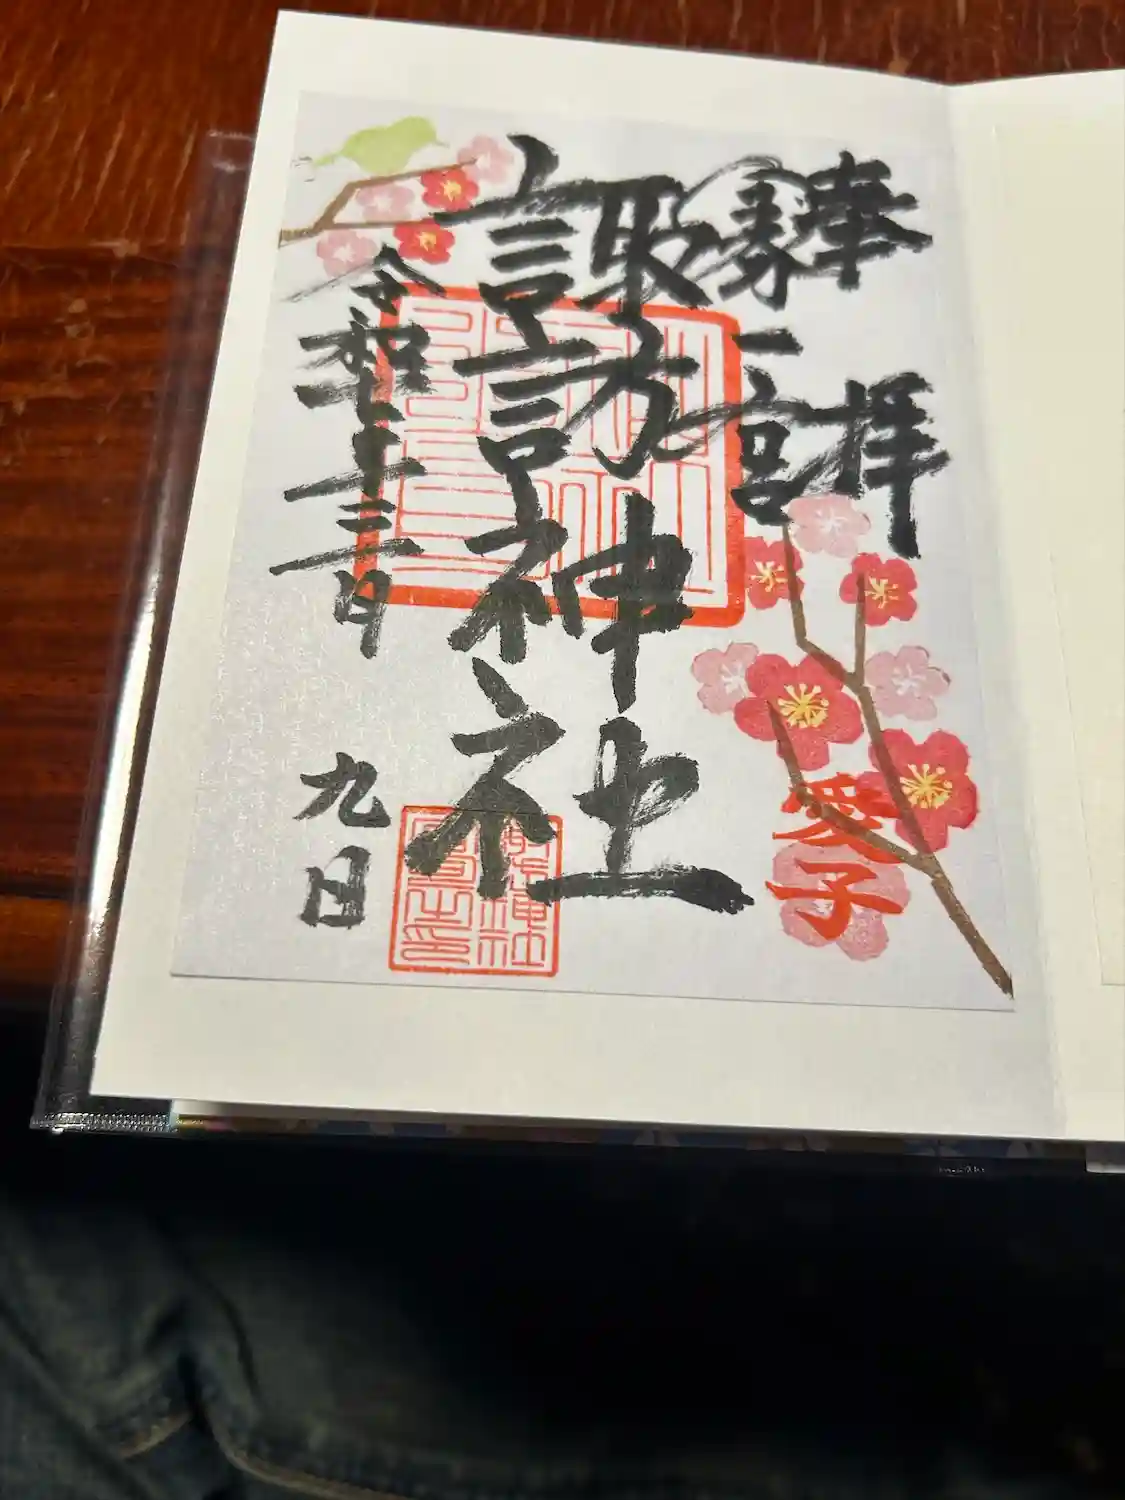 奉拝
一宮
諏訪神社
令和七年三月
九日
愛子
諏訪神社
宮司之印